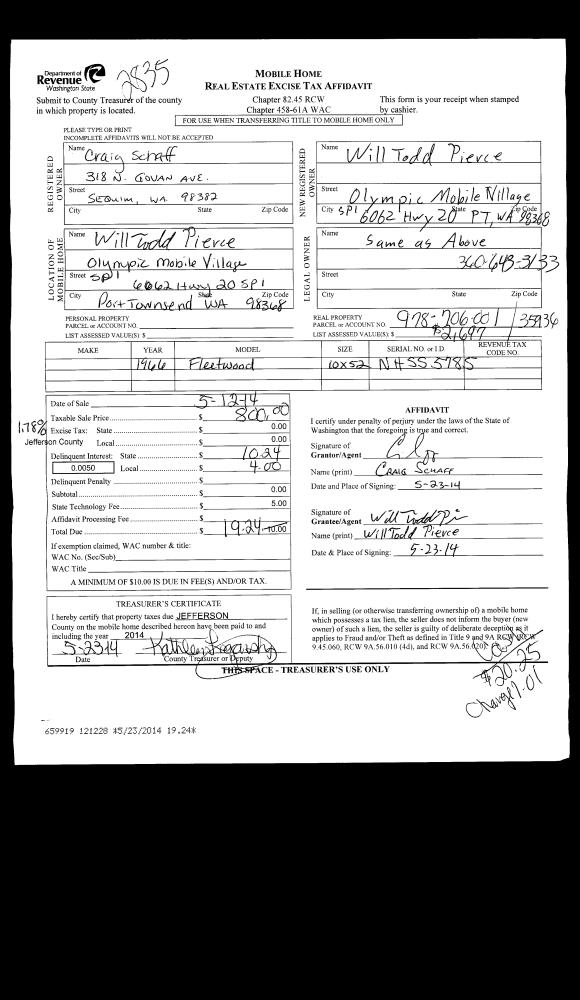 Department of
Revenue
Washington State
2835
Submit to County Treasurer of the county
in which property is located.
MOBILE HOME
REAL ESTATE EXCISE TAX AFFIDAVIT
Chapter 82.45 RCW
Chapter 458-61A WAC
This form is your receipt when stamped
by cashier.
FOR USE WHEN TRANSFERRING TITLE TO MOBILE HOME ONLY
PLEASE TYPE OR PRINT
INCOMPLETE AFFIDAVITS WILL NOT BE ACCEPTED
REGISTERED OWNER
Name Craig Schaff
318 N. GOVAN AVE.
Street SEQUIM, WA 98382
City State Zip Code
NEW REGISTERED OWNER
Name Will Todd Pierce
Street Olympic Mobile Village
City SP1 6062 Hwy 20 State PT, WA Zip Code 98368
LOCATION OF MOBILE HOME
Name Will Todd Pierce
Olympic Mobile Village
Street SP1 6062 Hwy 20 SP1
City Port Townsend State WA Zip Code 98368
LEGAL OWNER
Name Same as Above
360-643-3133
Street
City State Zip Code
PERSONAL PROPERTY
PARCEL or ACCOUNT NO.
LIST ASSESSED VALUE(S): $
REAL PROPERTY
PARCEL or ACCOUNT NO. 978-706-001 / 35936
LIST ASSESSED VALUE(S): $ $21,697
MAKE YEAR MODEL SIZE SERIAL NO. or I.D. REVENUE TAX CODE NO.
1966 Fleetwood 10x52 NHSS5785
Date of Sale 5-12-14
Taxable Sale Price $ 800.00
1.78% Excise Tax: State $ 0.00
Jefferson County Local $ 0.00
Delinquent Interest: State $ 10.24
0.0050 Local $ 4.00
Delinquent Penalty $
Subtotal $ 0.00
State Technology Fee $ 5.00
Affidavit Processing Fee $
Total Due $ 19.24 10.00
If exemption claimed, WAC number & title:
WAC No. (Sec/Sub)
WAC Title
A MINIMUM OF $10.00 IS DUE IN FEE(S) AND/OR TAX.
AFFIDAVIT
I certify under penalty of perjury under the laws of the State of
Washington that the foregoing is true and correct.
Signature of
Grantor/Agent
Name (print) CRAIG SCHAFF
Date and Place of Signing: 5-23-14
Signature of
Grantee/Agent Will Todd Pi
Name (print) Will Todd Pierce
Date & Place of Signing: 5-23-14
TREASURER'S CERTIFICATE
I hereby certify that property taxes due JEFFERSON
County on the mobile home described hereon have been paid to and
including the year 2014
5-23-14
Date County Treasurer or Deputy
If, in selling (or otherwise transferring ownership of) a mobile home
which possesses a tax lien, the seller does not inform the buyer (new
owner) of such a lien, the seller is guilty of deliberate deception as it
applies to Fraud and/or Theft as defined in Title 9 and 9A RCW (RCW
9.45.060, RCW 9A.56.010 (4d), and RCW 9A.56.020).
THIS SPACE - TREASURER'S USE ONLY
$20.25
Change 1.01
659919 121228 *5/23/2014 19.24*